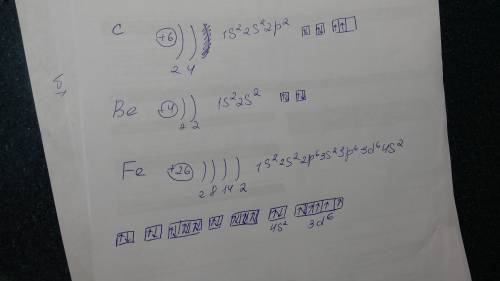 C +6 1s²2s²2p²
2 4
Be +4 1s²2s²
2 2
Fe +26 1s²2s²2p⁶3s²3p⁶3d⁶4s²
2 8 14 2
↑↓ ↑↓ ↑↓ ↑↓ ↑↓ ↑↓ ↑↓ ↑↓ ↑↓ ↑↓ ↑↓ ↑ ↑ ↑ ↑
4s² 3d⁶